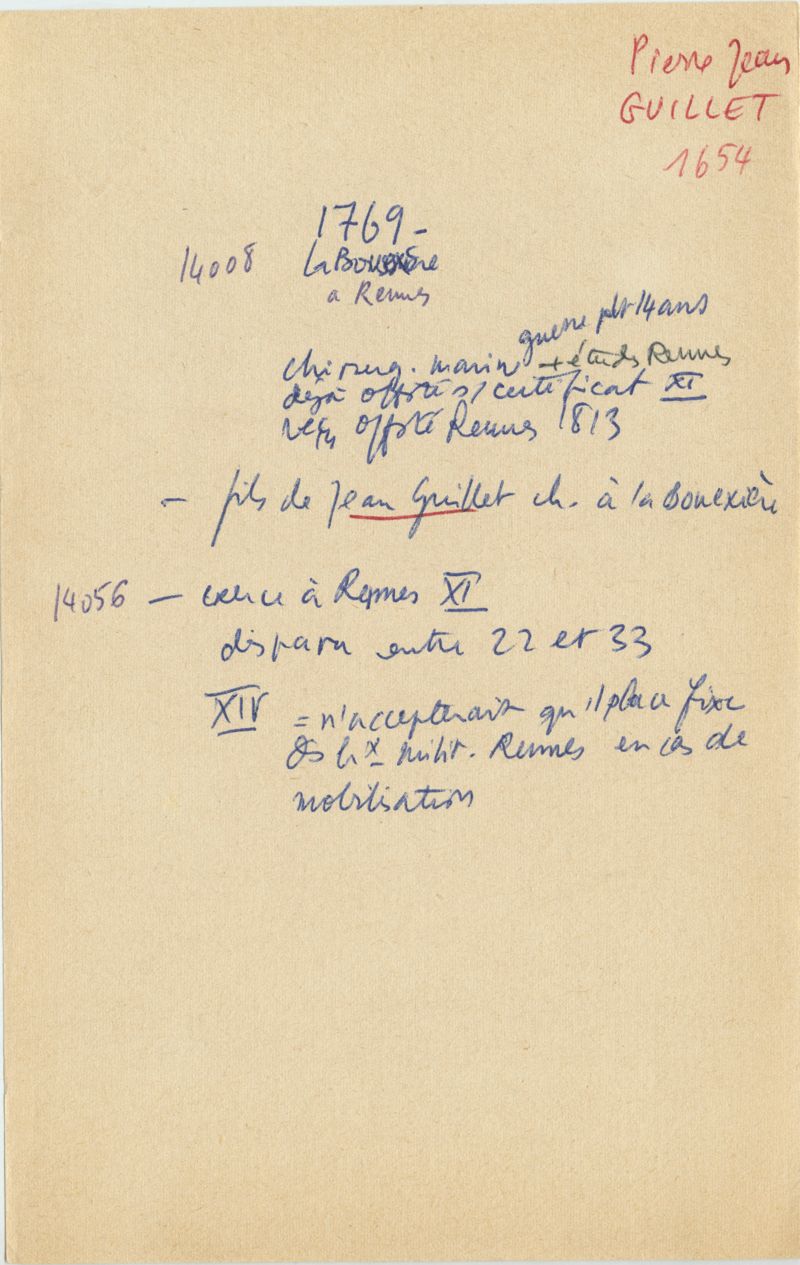 Pierre Jean
GUILLET
1654
1769 -
14008 la Bouexière
a Rennes
guerre pdt 14 ans
chirurg. marin + études Rennes
déjà offté s/ certificat XI
reçu offté Rennes 1813
- fils de Jean Guillet ch. à la Bouexière
14056 - exerce à Rennes XI
disparu entre 22 et 33
XIV = n'accepterait qu'1 place fixe
ds hx milit. Rennes en cas de
mobilisation